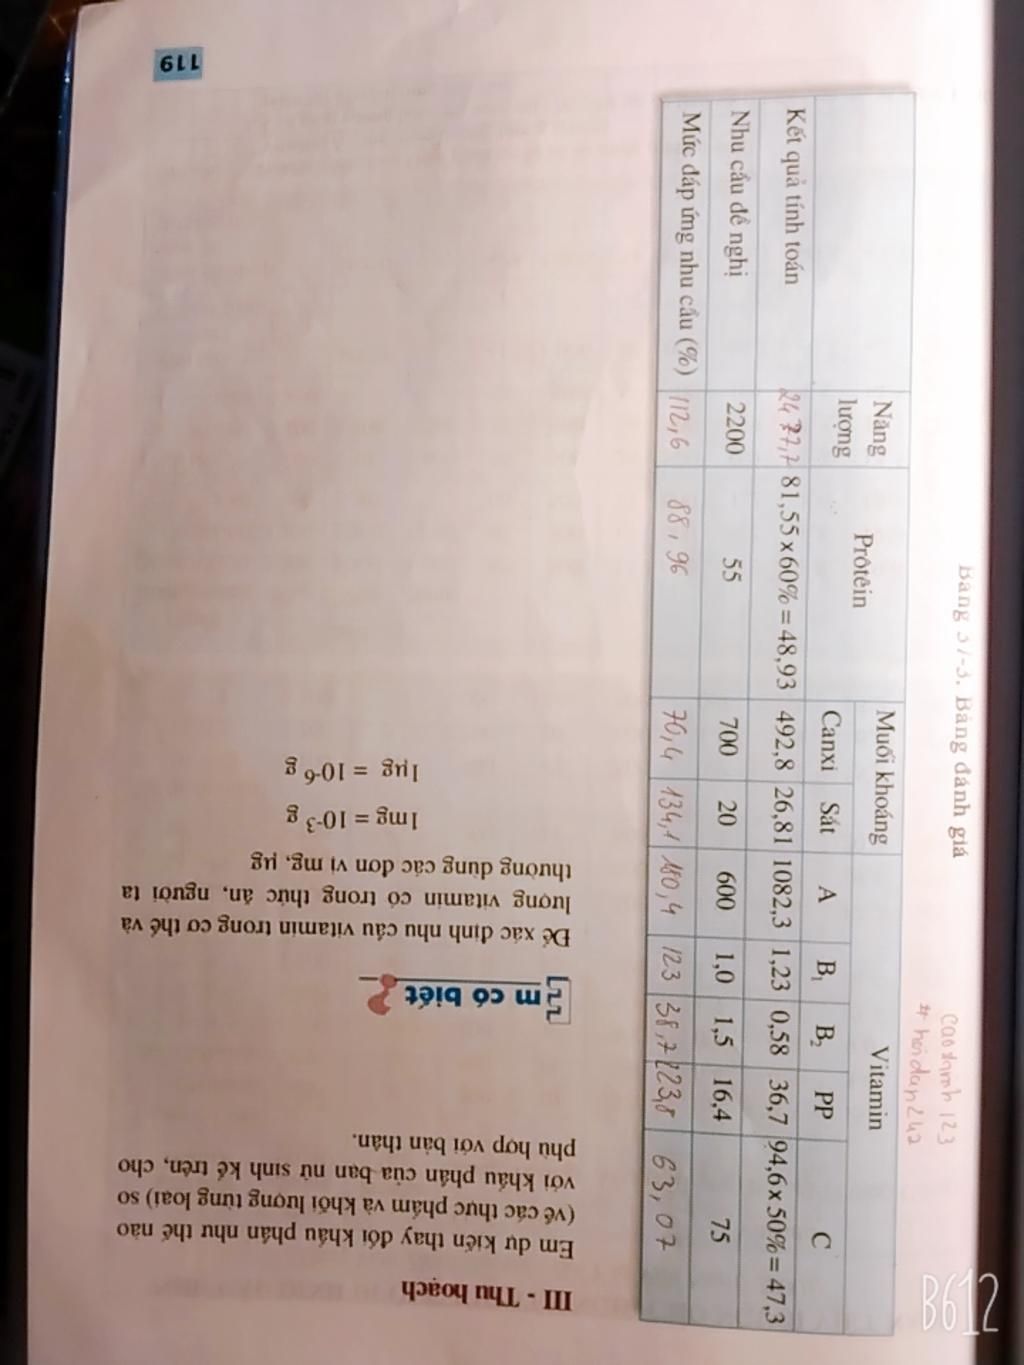 Bảng 37-3. Bảng đánh giá
caothinh123
# hoidap242
Năng lượng Prôtêin Muối khoáng Vitamin
Canxi Sắt A B₁ B₂ PP C
Kết quả tính toán 2477,7 81,55 x 60% = 48,93 492,8 26,81 1082,3 1,23 0,58 36,7 94,6 x 50% = 47,3
Nhu cầu đề nghị 2200 55 700 20 600 1,0 1,5 16,4 75
Mức đáp ứng nhu cầu (%) 112,6 88,96 70,4 134,1 180,4 123 38,7 223,8 63,07
III - Thu hoạch
Em dự kiến thay đổi khẩu phần như thế nào
(về các thực phẩm và khối lượng từng loại) so
với khẩu phần của bạn nữ sinh kể trên, cho
phù hợp với bản thân.
Em có biết
Để xác định nhu cầu vitamin trong cơ thể và
lượng vitamin có trong thức ăn, người ta
thường dùng các đơn vị mg, µg
1mg = 10⁻³ g
1µg = 10⁻⁶ g
119
B612